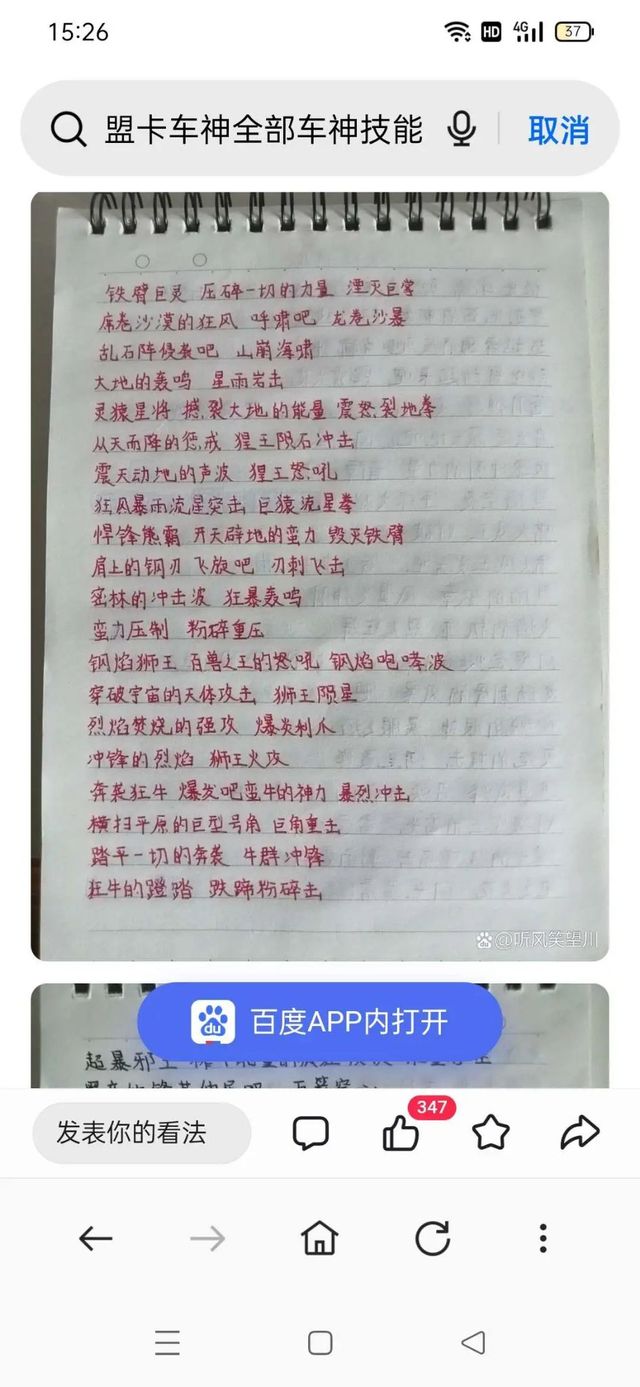 15:26
HD 4G 37
盟卡车神全部车神技能 取消
铁臂巨灵 压碎一切的力量 湮灭巨掌
席卷沙漠的狂风 呼啸吧 龙卷沙暴
乱石阵侵袭吧 山崩海啸
大地的轰鸣 星雨岩击
灵猿星将 撼裂大地的能量 震怒裂地拳
从天而降的惩戒 猩王陨石冲击
震天动地的声波 猩王怒吼
狂风暴雨流星突击 巨猿流星拳
悍锋熊霸 开天辟地的蛮力 毁灭铁臂
肩上的钢刃 飞放吧 刃刺飞击
密林的冲击波 狂暴轰鸣
蛮力压制 粉碎重压
钢焰狮王 百兽之王的怒吼 钢焰咆哮波
穿破宇宙的天体攻击 狮王陨星
烈焰焚烧的强攻 爆炎利爪
冲锋的烈焰 狮王火攻
奔袭狂牛 爆发吧蛮牛的神力 暴烈冲击
横扫平原的巨型号角 巨角重击
踏平一切的奔袭 牛群冲锋
狂牛的蹬踏 跌蹄粉碎击
du @听风笑望川
超暴邪王
du 百度APP内打开
发表你的看法 347